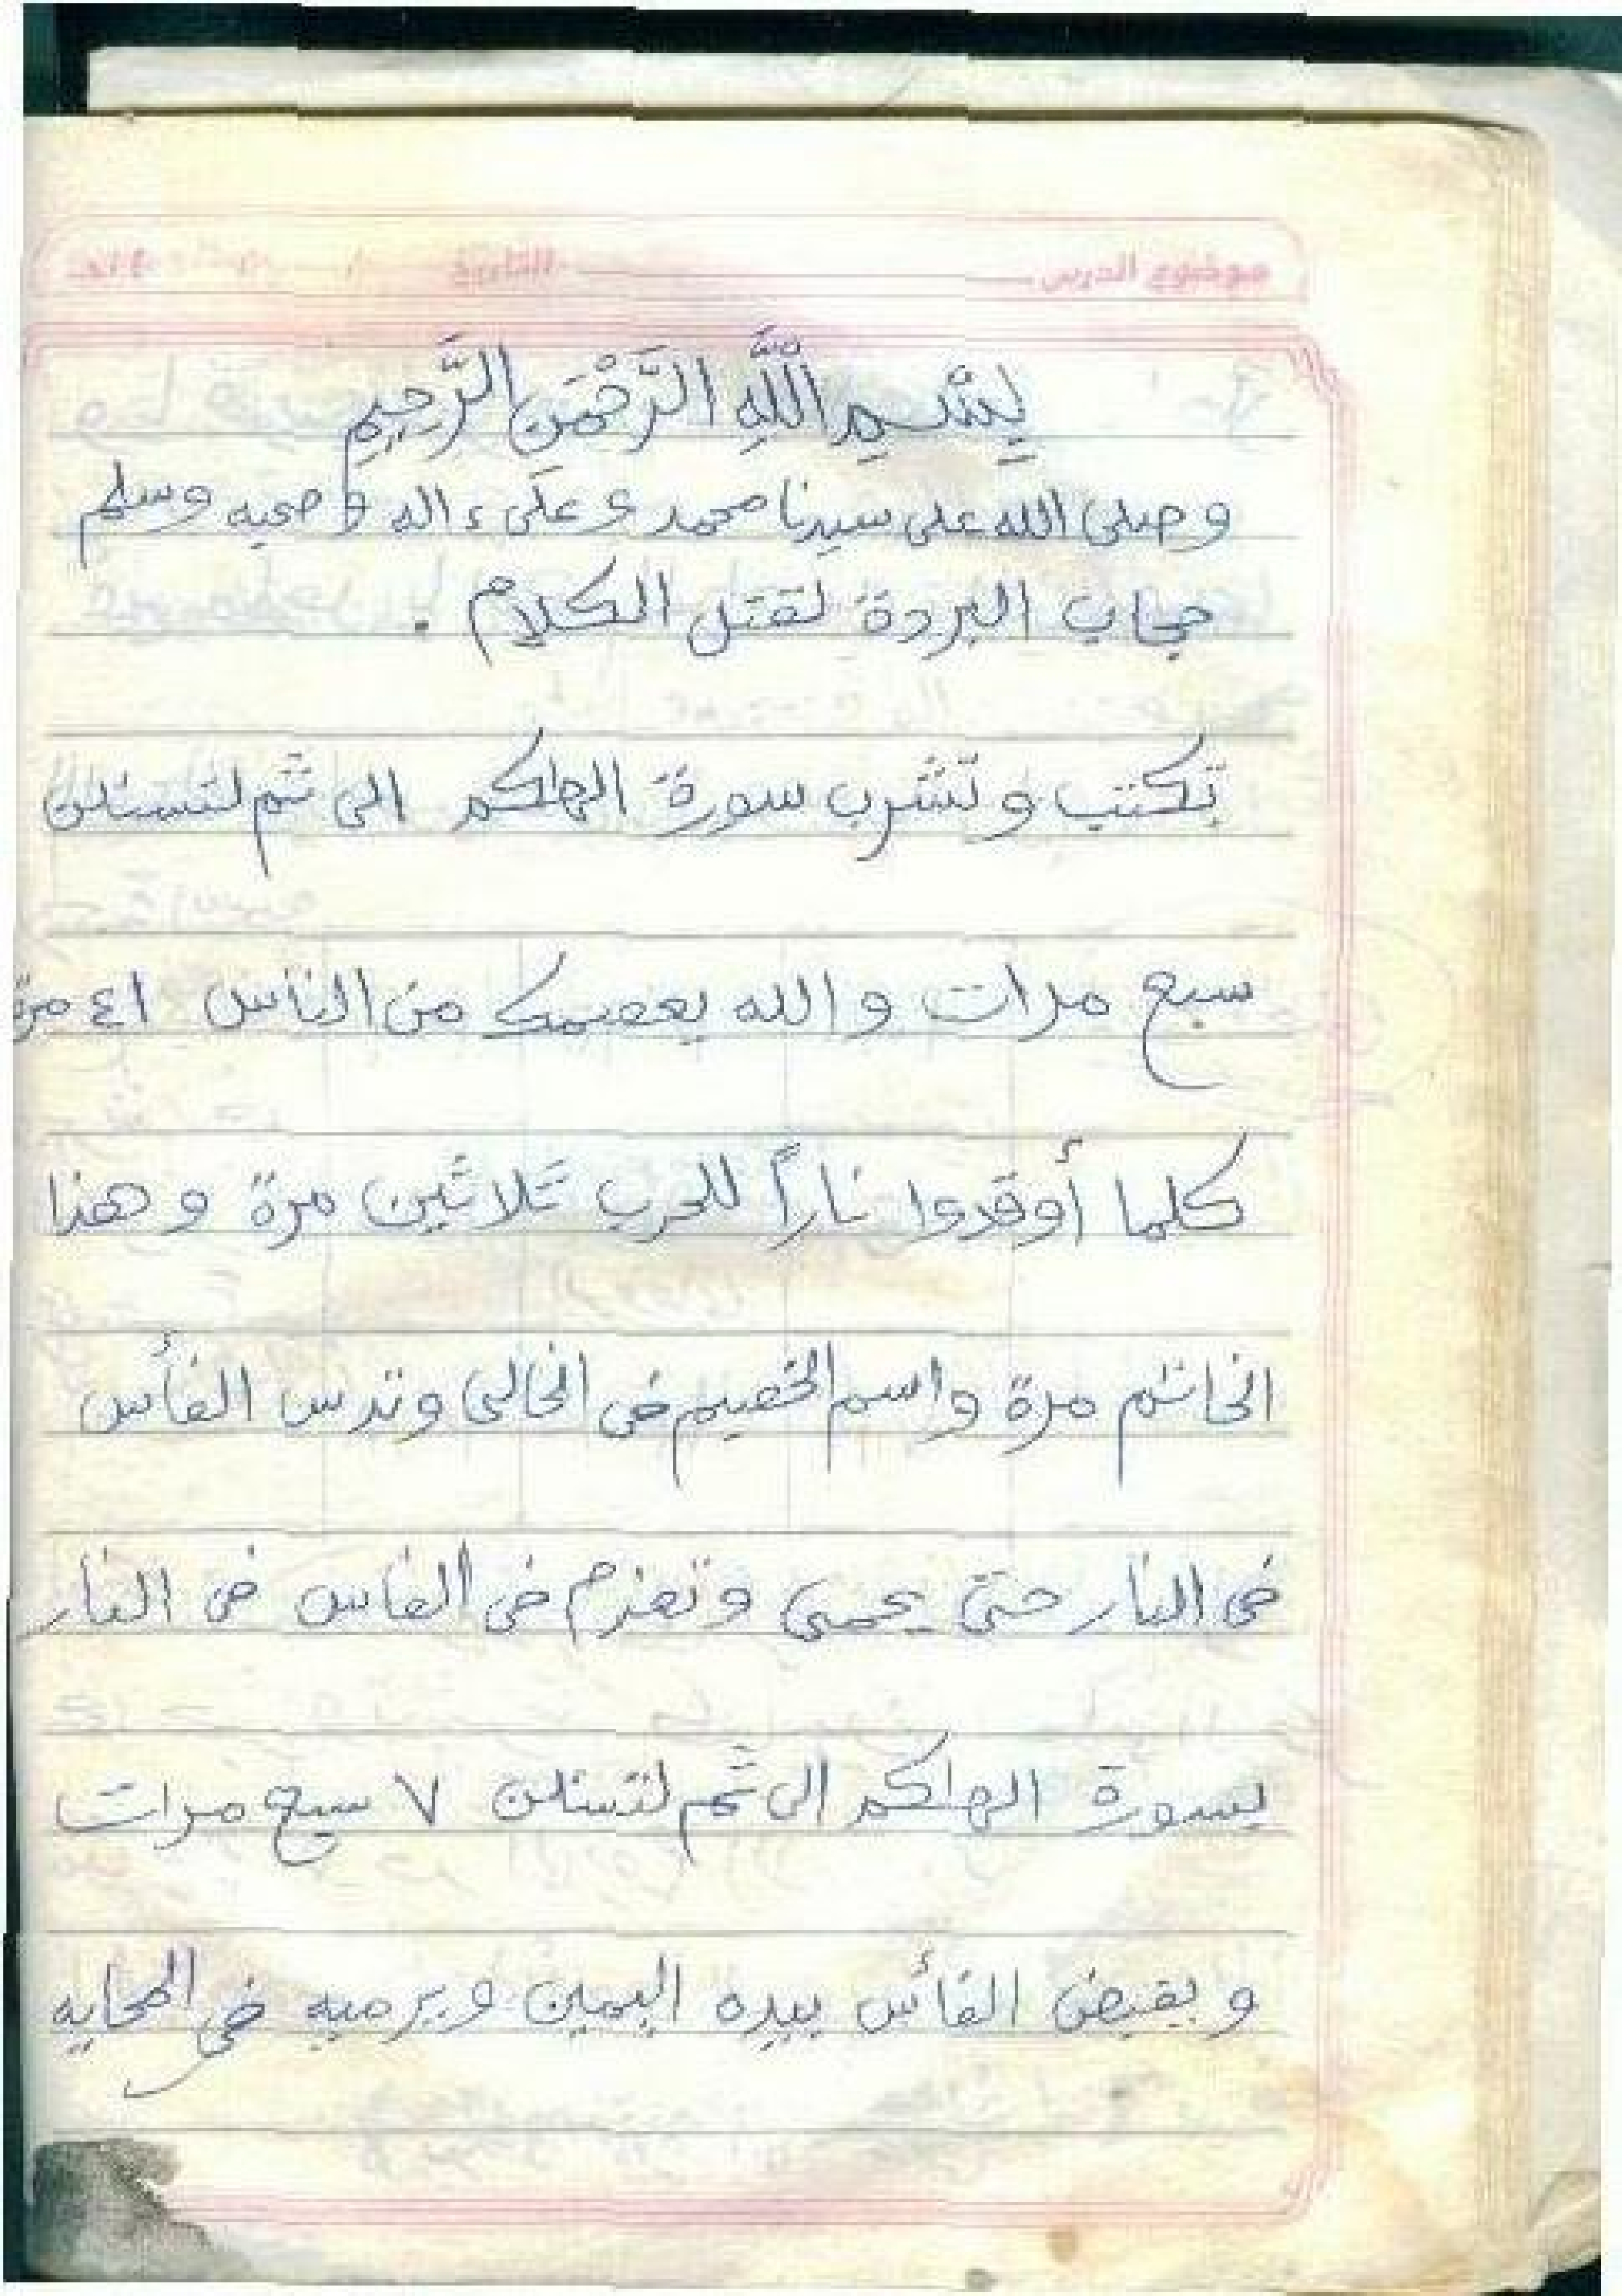 موضوع الدرس التاريخ / / ١٤هـ
بِسْمِ اللَّهِ الرَّحْمَنِ الرَّحِيمِ
وصلى الله على سيدنا محمد وعلى ءاله وصحبه وسلم
حجاب البردة لقتل الكلام .
تكتب وتشرب سورة الهاكم الى ثم لتسئلن
سبع مرات والله يعصمك من الناس ٤١ مرة
كلما أوقدوا ناراً للحرب ثلاثين مرة وهذا
الخاتم مرة واسم الخصيم فى الخالى وتدس الفأس
فى النار حتى يحمى وتعزم فى الفاس فى النار
بسورة الهاكم الى ثم لتسئلن ٧ سبع مرات
و يقبض الفأس بيده اليمين ويرميه فى المحايه